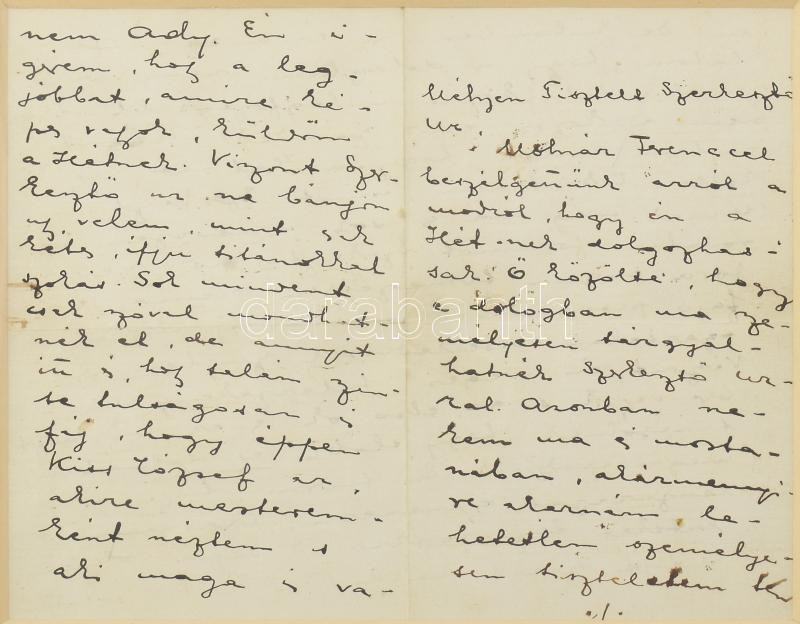 nem Ady. Én i-
gérem, hogy a leg-
jobbat, amire ké-
pes vagyok, küldöm
a Hétnek. Viszont Szer-
kesztő úr ne bánjon
úgy velem, mint sok
hetes, ifju titánokkal
szokás. Sok mindent
csak szóval mondhat-
nék el, de annyit
itt is, hogy talán szin-
te tulságosan is
fáj, hogy éppen
Kiss József úr,
akire mesterem-
ként néztem s
aki maga is va-
Mélyen Tisztelt Szerkesztő
Úr, Molnár Ferenccel
beszélgettünk arról a
módról, hogy én a
Hét-nek dolgozhas-
sak. Ő közölte, hogy
e dologban ma sze-
mélyesen tárgyal-
hatnék Szerkesztő úr-
ral. Azonban ne-
kem ma és mosta-
nában, akármennyi-
re akarnám le-
hetetlen személye-
sen tisztelnem
./.
darabanth